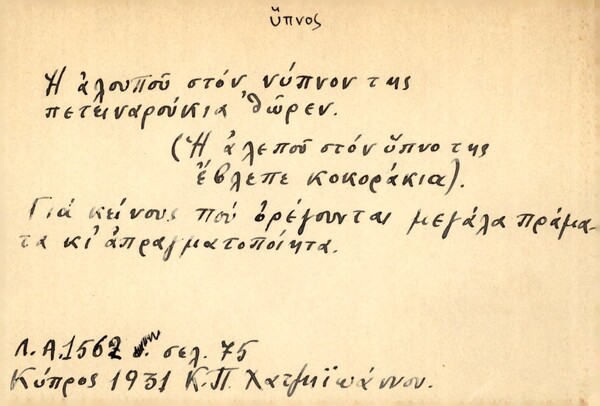 ὕπνος
Ἡ ἀλουποῦ στόν νύπνον της
πετειναρούκια ᾿θῶρεν.
(Ἡ ἀλεποῦ στόν ὕπνο της
ἔβλεπε κοκοράκια).
Γιά κείνους πού ὀρέγουνται μεγάλα πράμα-
τα κι᾿ ἀπραγματοποίητα.
Λ.Α. 1562 σελ. 75
Κύπρος 1931 Κ.Π. Χατζηϊωάννου.